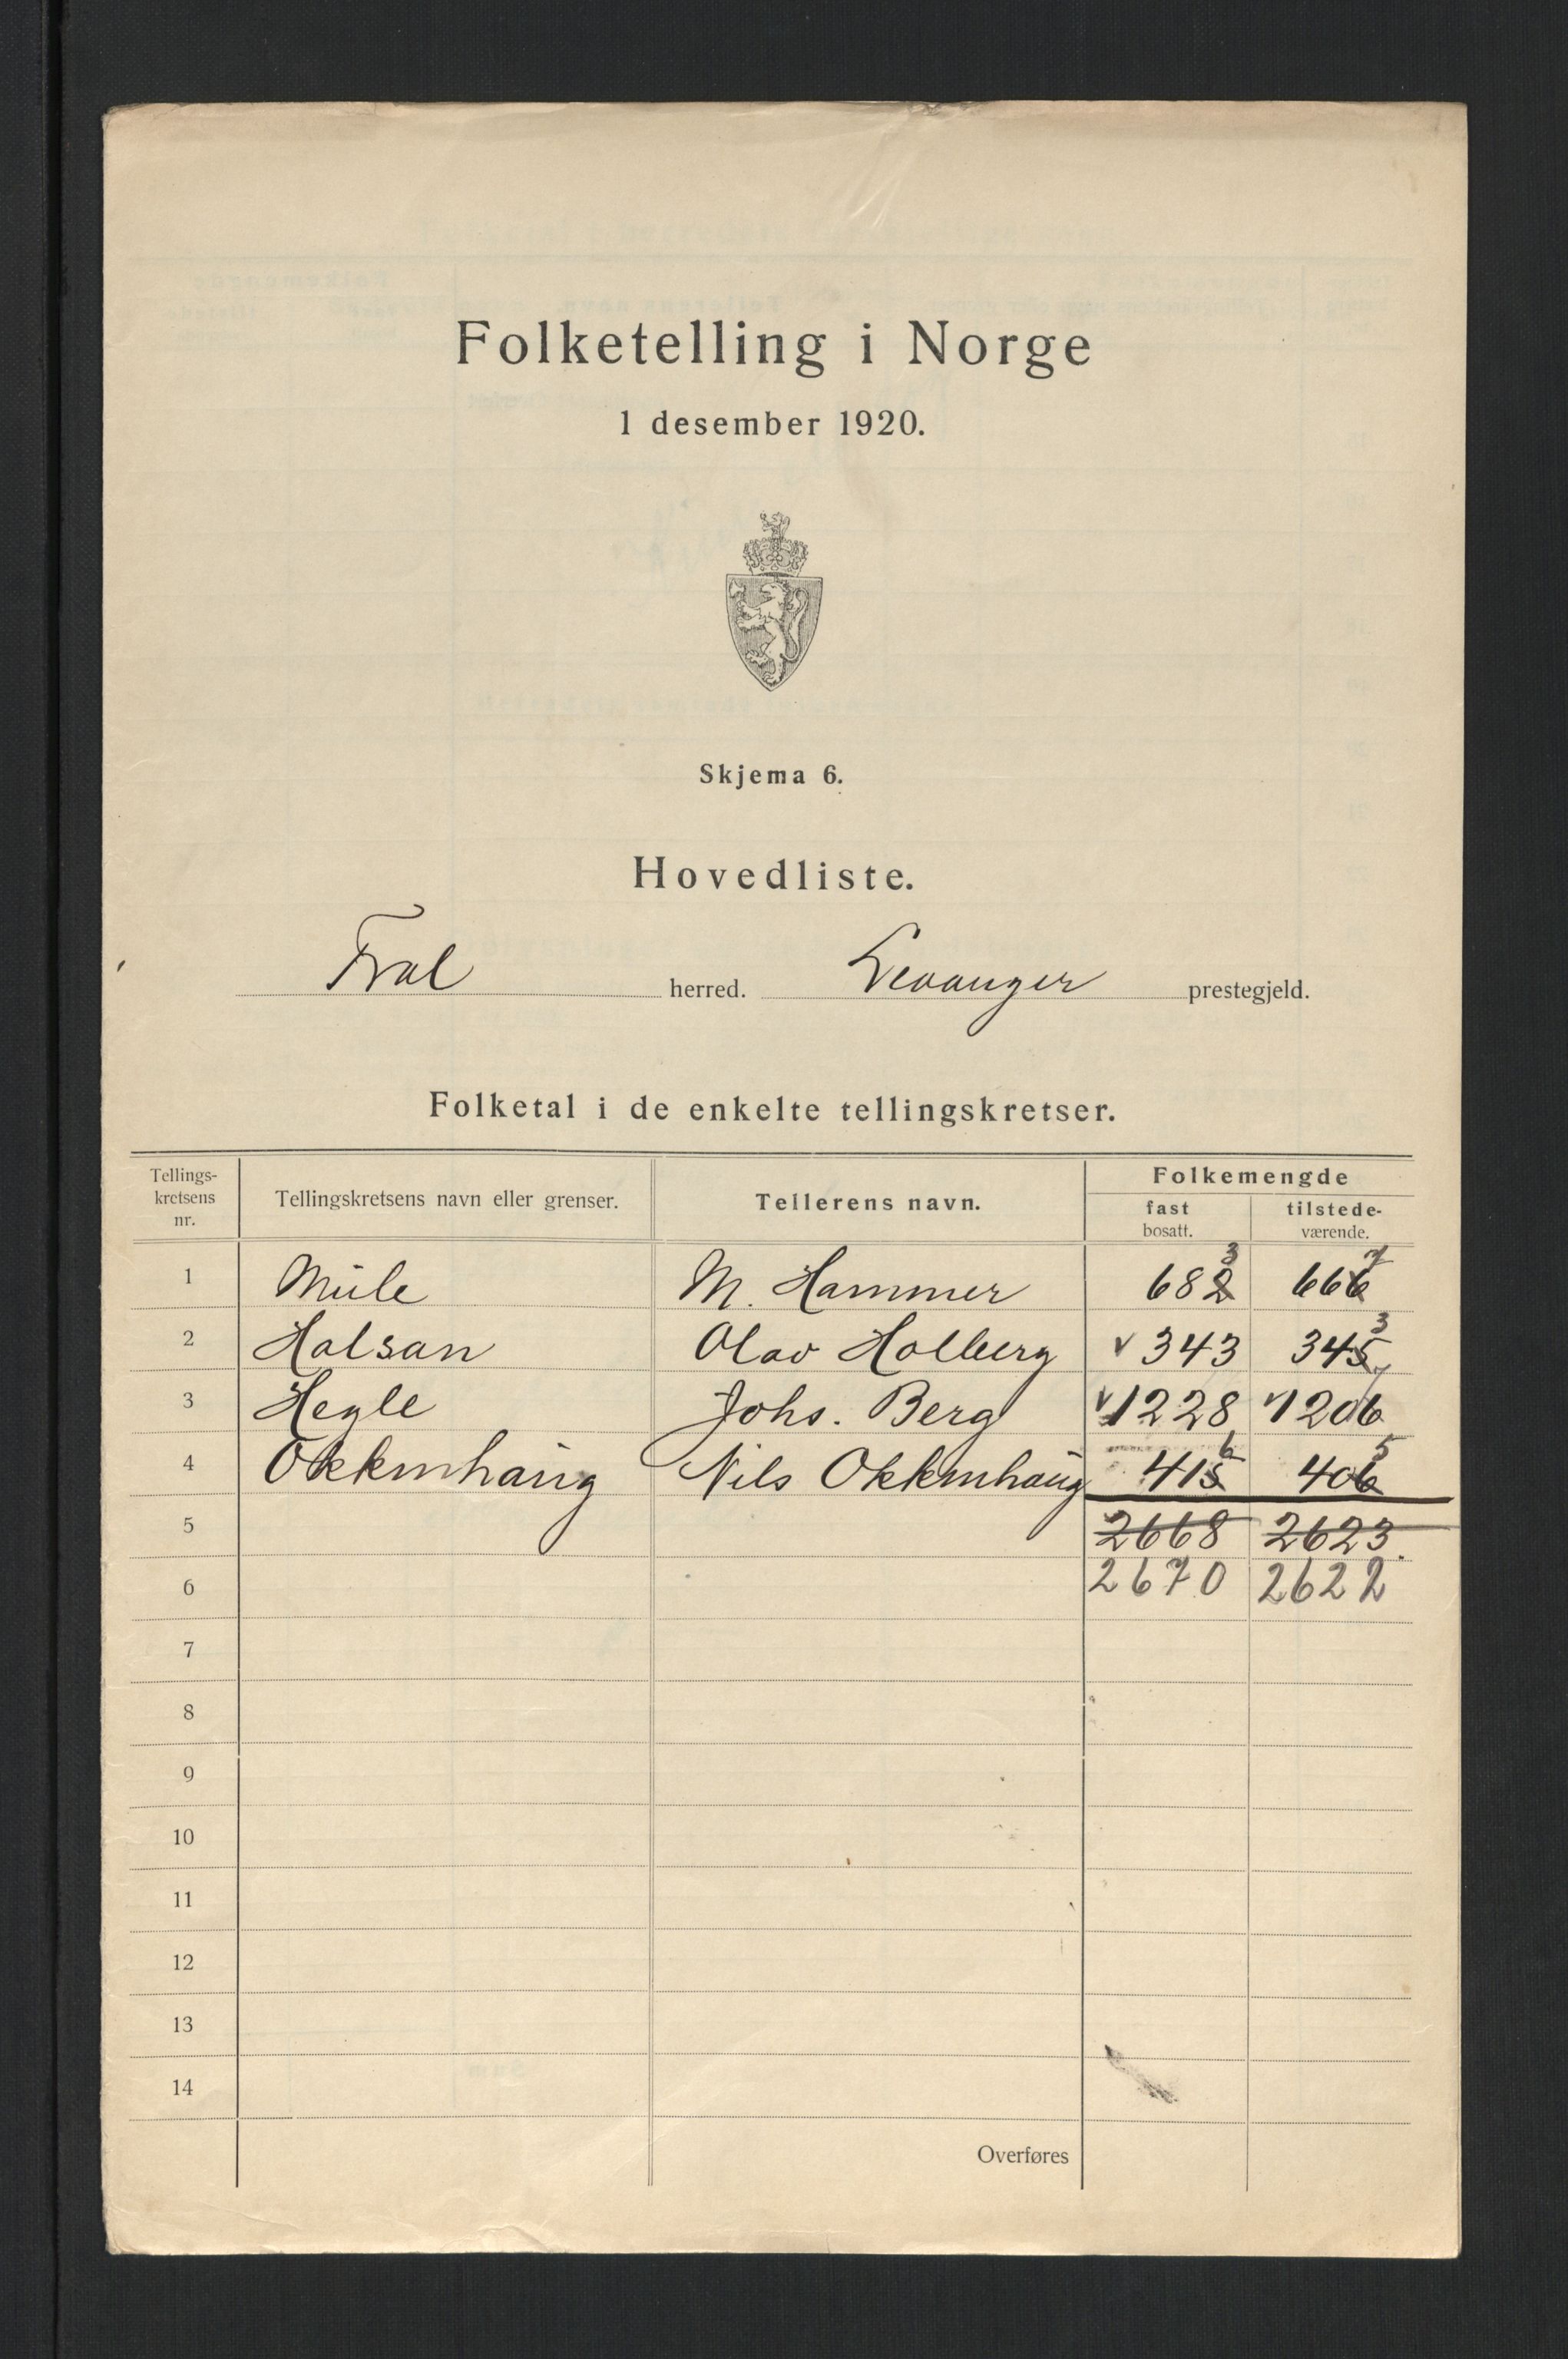 Folketelling i Norge
1 desember 1920.
Skjema 6.
Hovedliste.
Frol herred. Levanger prestegjeld.
Folketal i de enkelte tellingskretser.
Tellings-kretsens nr. Tellingskretsens navn eller grenser. Tellerens navn. Folkemengde fast bosatt. tilstede-værende.
3 7
1 Mule M. Hammer 682 666
3
2 Halsan Olav Holberg v 343 345
7
3 Hegle Johs. Berg v 1228 v 1206
6 5
4 Okkenhaug Nils Okkenhaug 415 406
5 2668 2623.
6 2670 2622
7
8
9
10
11
12
13
14
Overføres